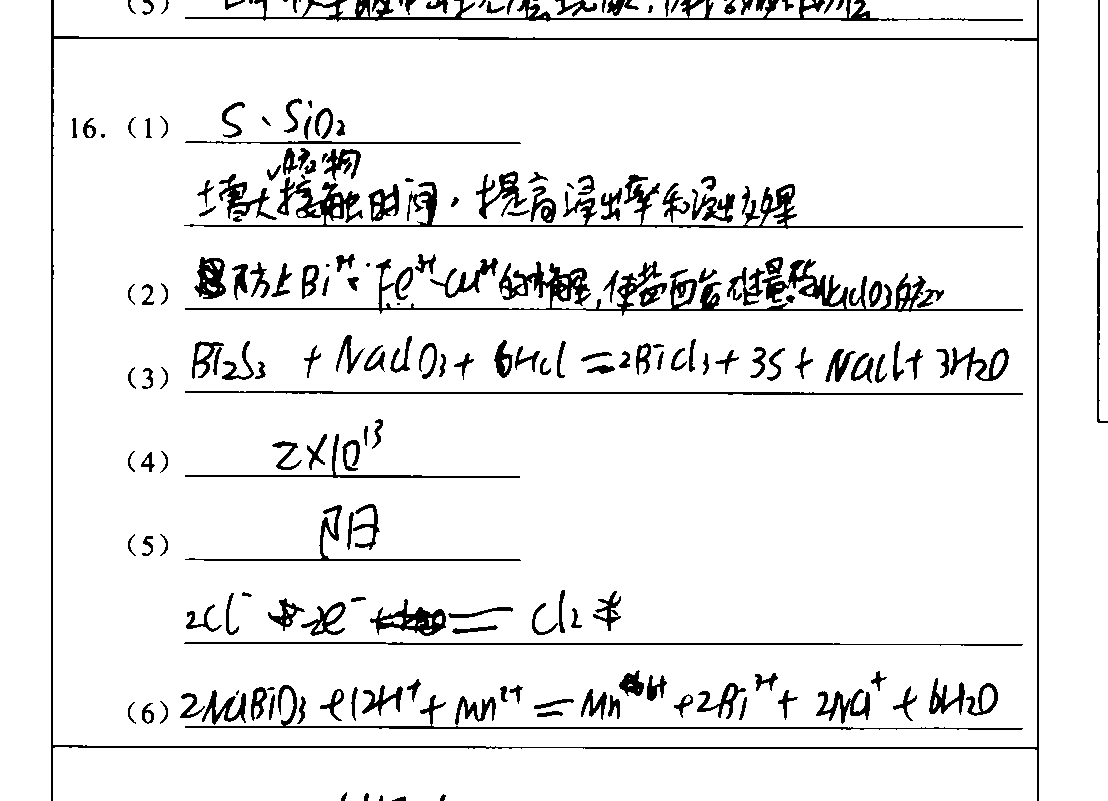 (5)
16. (1) S、SiO₂
反应物
增大接触时间，提高浸出率和浸出效果
(2) 防止Bi³⁺、Fe³⁺、Cu²⁺的水解，使盐酸 NaClO₃
(3) Bi₂S₃ + NaClO₃ + 6HCl = 2BiCl₃ + 3S + NaCl + 3H₂O
(4) 2×10¹³
(5) 阳
2Cl⁻ - 2e⁻ = Cl₂
(6) 2NaBiO₃ + 12H⁺ + Mn²⁺ = Mn⁶⁺ + 2Bi³⁺ + 2Na⁺ + 6H₂O